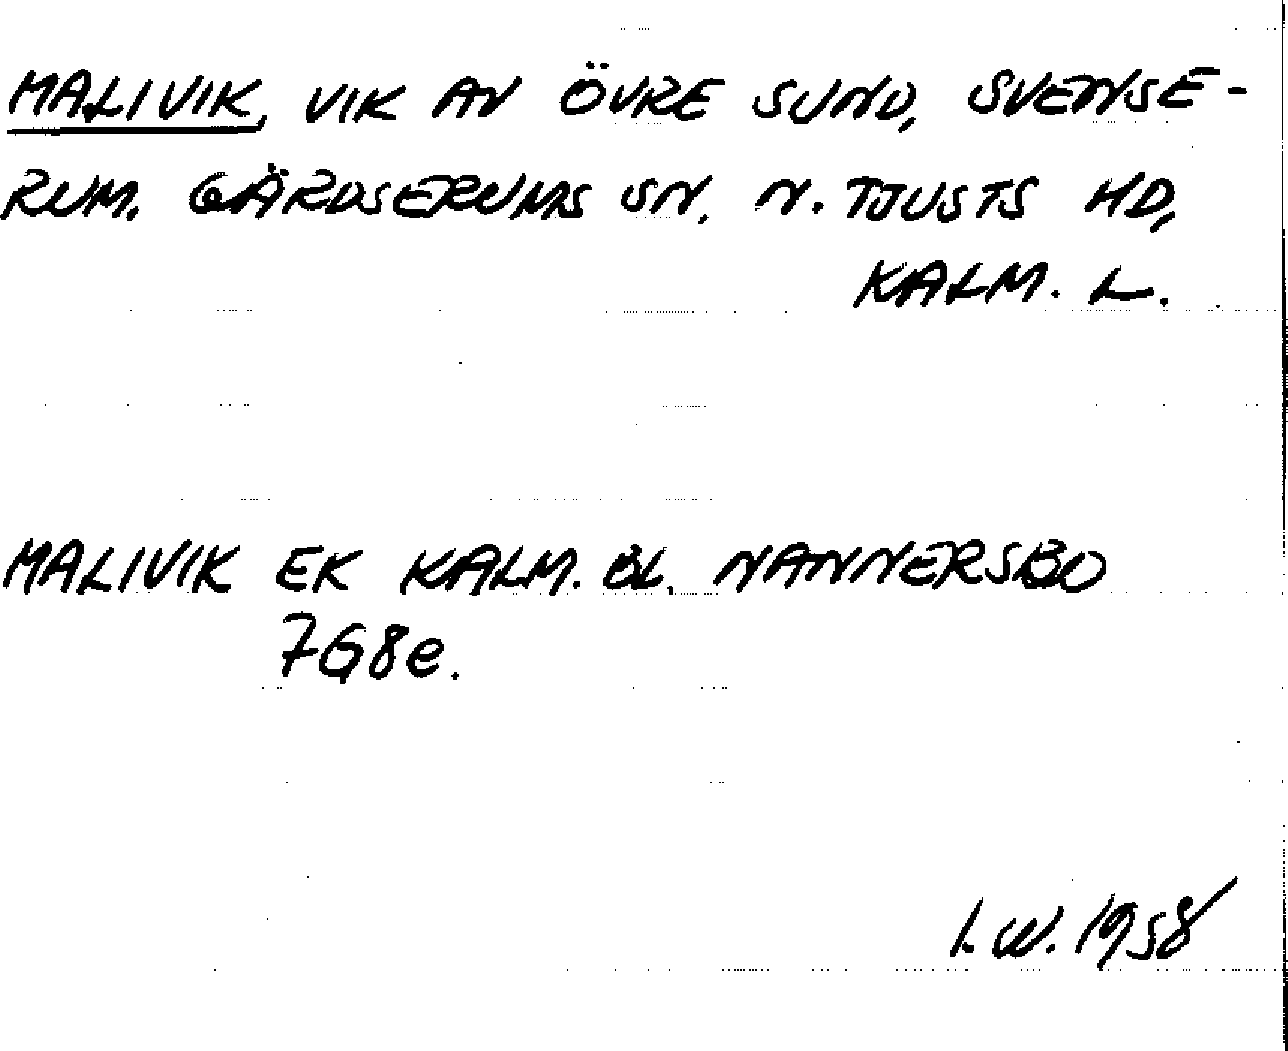 MALIVIK, VIK AV ÖVRE SUND, SVENSE-
RUM. GÄRDSERUMS SN. N. TJUSTS HD,
KALM. L.
MALIVIK EK KALM. BL. NANNERSBO
7G8e.
I.W. 1958